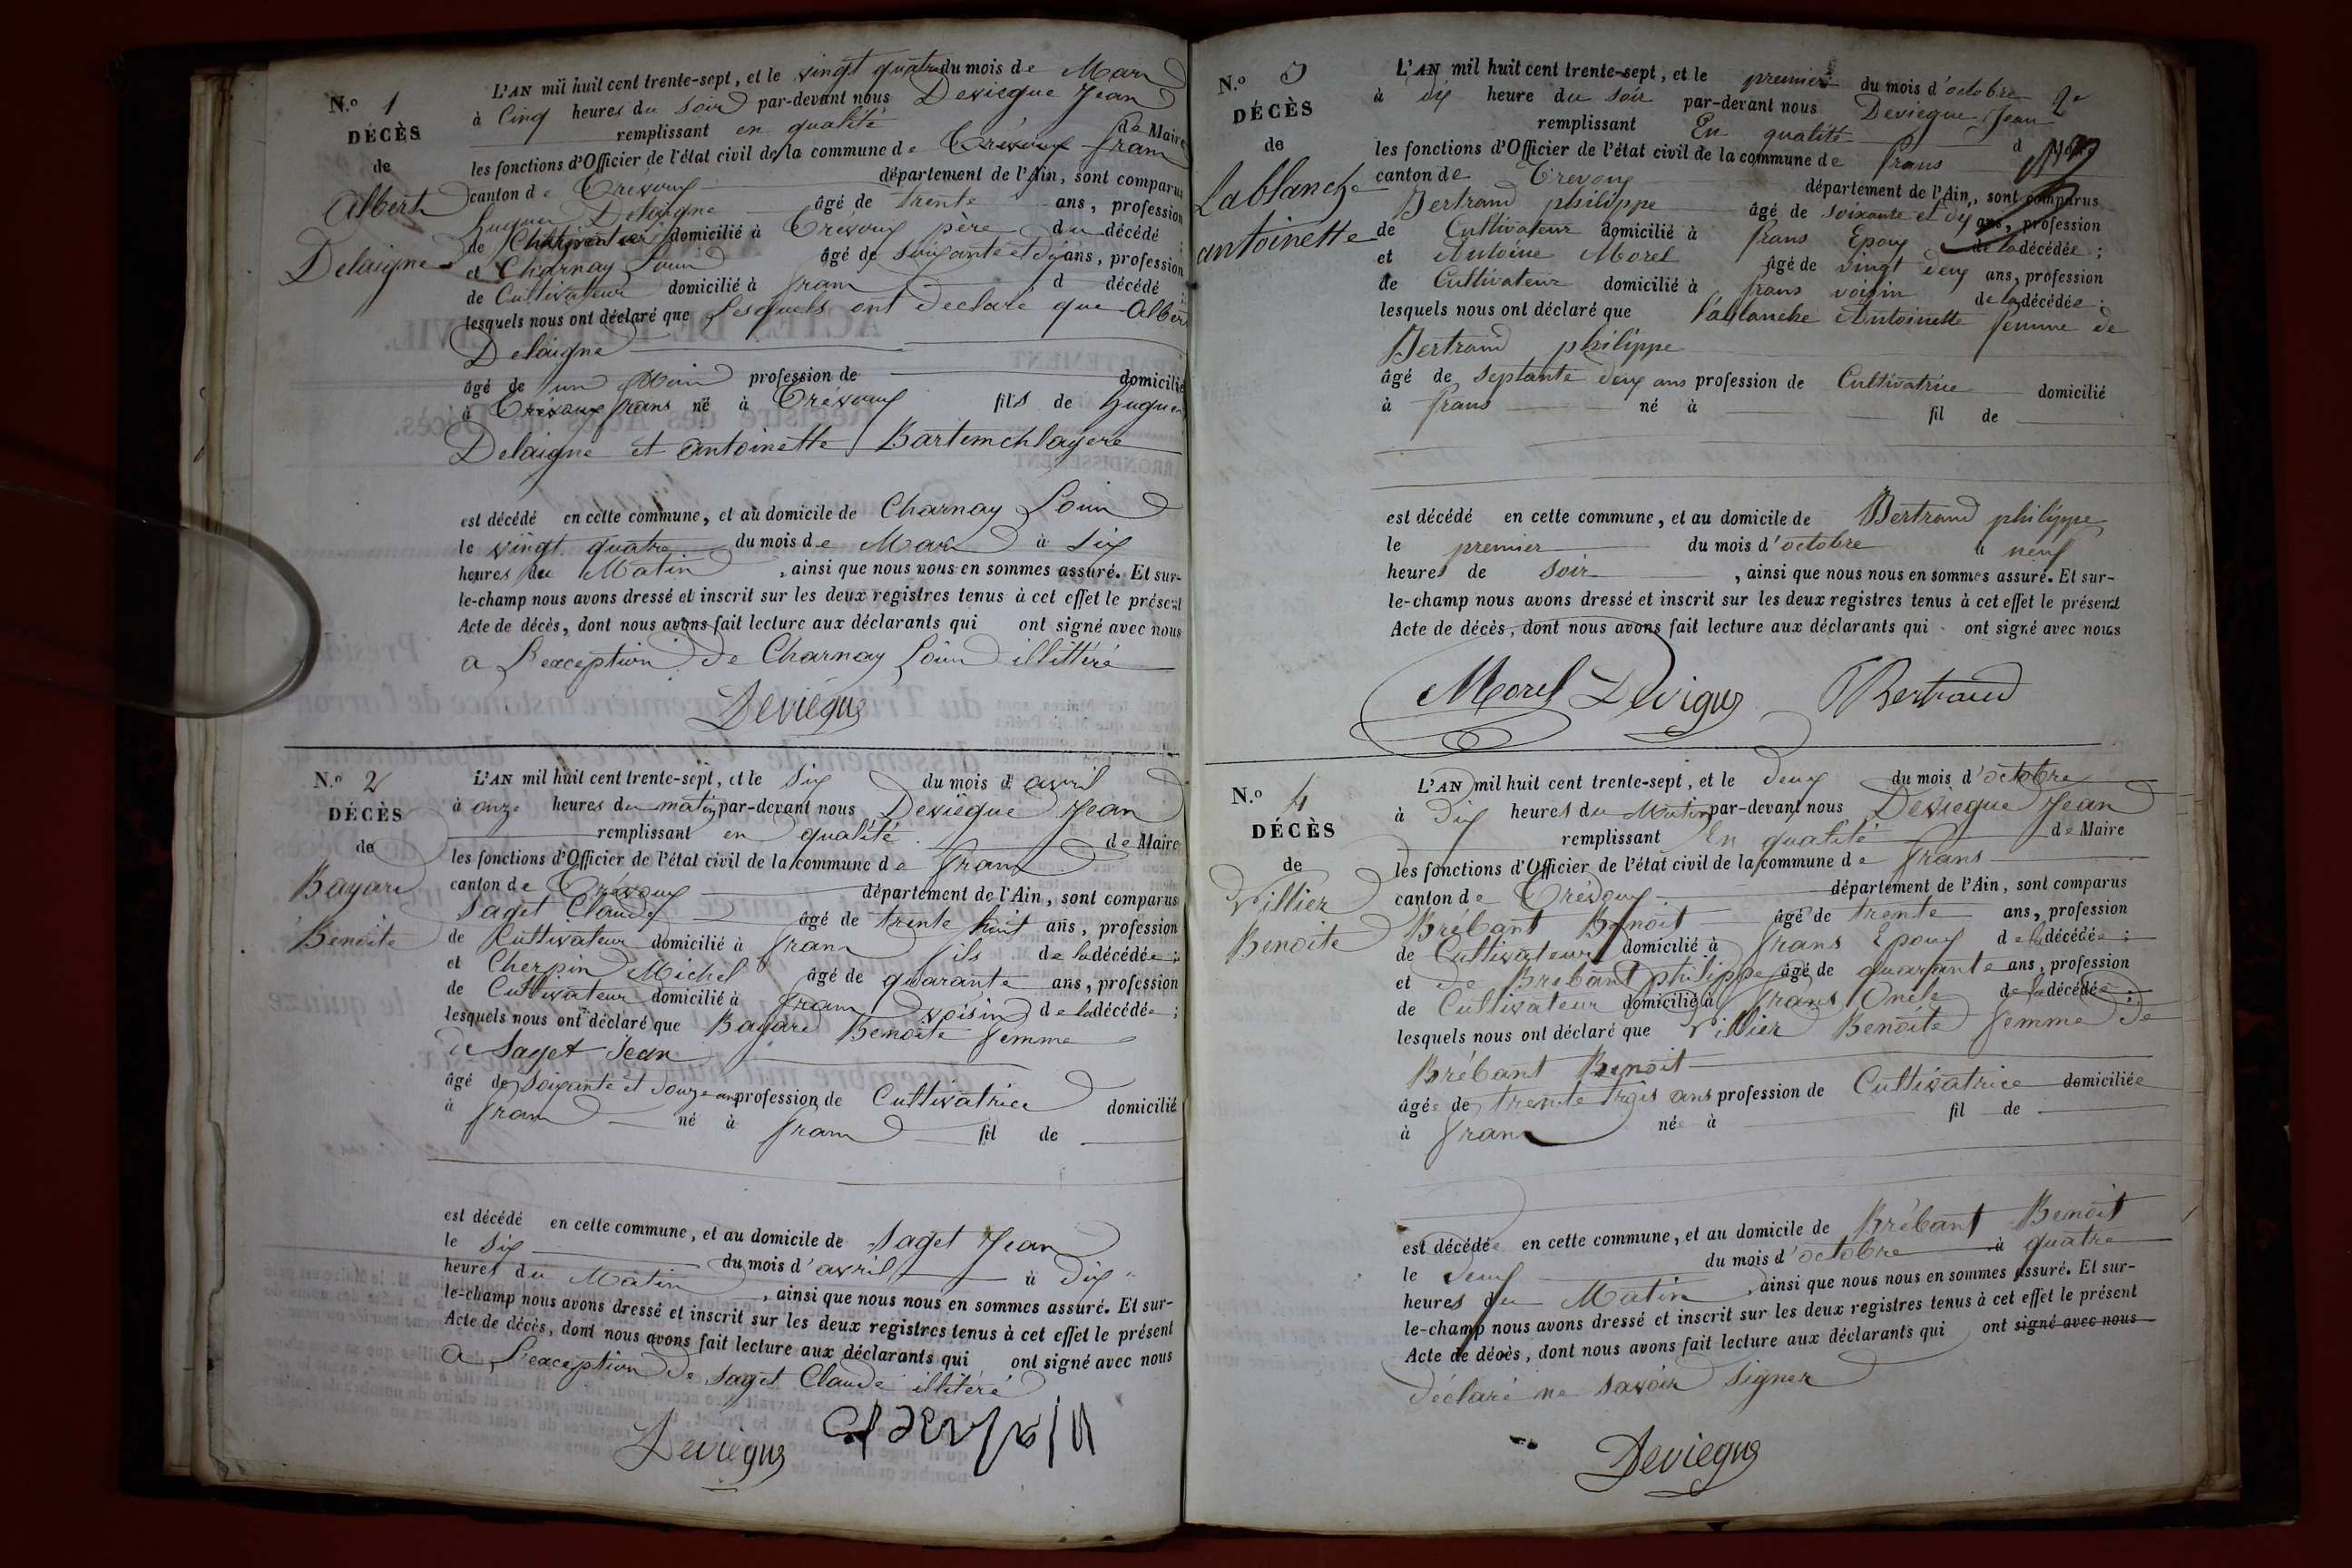 N.o 1
DÉCÈS
de
Albert
Delaigne
L'AN mil huit cent trente-sept, et le vingt quatre du mois de Mars
à Cinq heures du Soir par-devant nous Deviegue Jean
remplissant en qualité de Maire
les fonctions d'Officier de l'état civil de la commune de Trévoux frans
canton de Trévoux département de l'Ain, sont comparus
hugues Delaigne âgé de trente ans, profession
de Charpentier domicilié à Trévoux père du décédé ;
et Charnay Louis âgé de soixante et dix ans, profession
de Cultivateur domicilié à frans d décédé ;
lesquels nous ont déclaré que Lesquels ont déclaré que Albert
Delaigne
âgé de un Mois profession de domicilié
à Trévoux frans né à Trévoux fils de hugues
Delaigne et antoinette Bartemchlayere
est décédé en cette commune, et au domicile de Charnay Louis
le vingt quatre du mois de Mars à Six
heures du Matin , ainsi que nous nous en sommes assuré. Et sur-
le-champ nous avons dressé et inscrit sur les deux registres tenus à cet effet le présent
Acte de décès, dont nous avons fait lecture aux déclarants qui ont signé avec nous
a L'exception de Charnay Louis illittéré
Deviegue
N.o 2
DÉCÈS
de
Bayard
Benoite
L'AN mil huit cent trente-sept, et le Six du mois d'avril
à onze heures du matin par-devant nous Deviegue Jean
remplissant en qualité de Maire
les fonctions d'Officier de l'état civil de la commune de frans
canton de Trévoux département de l'Ain, sont comparus
Saget Claude âgé de trente huit ans, profession
de Cultivateur domicilié à frans fils de la décédée ;
et Cherpin Michel âgé de quarante ans, profession
de Cultivateur domicilié à frans voisin de la décédée ;
lesquels nous ont déclaré que Bayard Benoite femme
de Saget Jean
âgé de soixante et douze ans profession de Cultivatrice domicilié
à frans né à frans fil de
est décédé en cette commune, et au domicile de Saget Jean
le Six du mois d'avril à Dix
heures du Matin , ainsi que nous nous en sommes assuré. Et sur-
le-champ nous avons dressé et inscrit sur les deux registres tenus à cet effet le présent
Acte de décès, dont nous avons fait lecture aux déclarants qui ont signé avec nous
a L'exception de Saget Claude illitéré
Deviegue
N.o 3
DÉCÈS
de
Lablanche
antoinette
L'AN mil huit cent trente-sept, et le premier du mois d'octobre
à dix heure du soir par-devant nous Deviegue Jean
remplissant En qualité d Maire
les fonctions d'Officier de l'état civil de la commune de frans
canton de Trevoux département de l'Ain, sont comparus
Bertrand philippe âgé de soixante et dix ans, profession
de Cultivateur domicilié à frans Epoux de la décédée ;
et Antoine Morel âgé de vingt deux ans, profession
de Cultivateur domicilié à frans voisin de la décédée ;
lesquels nous ont déclaré que Lablanche Antoinette femme de
Bertrand philippe
âgé de septante deux ans profession de Cultivatrice domicilié
à frans né à fil de
est décédé en cette commune, et au domicile de Bertrand philippe
le premier du mois d'octobre à neuf
heures de soir , ainsi que nous nous en sommes assuré. Et sur-
le-champ nous avons dressé et inscrit sur les deux registres tenus à cet effet le présent
Acte de décès, dont nous avons fait lecture aux déclarants qui ont signé avec nous
Morel Deviegue Bertrand
N.o 4
DÉCÈS
de
Villier
Benoite
L'AN mil huit cent trente-sept, et le deux du mois d'octobre
à Dix heures du Matin par-devant nous Deviegue Jean
remplissant En qualité de Maire
les fonctions d'Officier de l'état civil de la commune de frans
canton de Trévoux département de l'Ain, sont comparus
Brébant Benoit âgé de trente ans, profession
de Cultivateur domicilié à frans Epoux de la décédée ;
et de Brebant philippe âgé de quarante ans, profession
de Cultivateur domicilié à frans Oncle de la décédée ;
lesquels nous ont déclaré que Villier Benoite femme de
Brébant Benoit
âgée de trente trois ans profession de Cultivatrice domiciliée
à frans née à fil de
est décédée en cette commune, et au domicile de Brébant Benoit
le deux du mois d'octobre à quatre
heures du Matin , ainsi que nous nous en sommes assuré. Et sur-
le-champ nous avons dressé et inscrit sur les deux registres tenus à cet effet le présent
Acte de décès, dont nous avons fait lecture aux déclarants qui ont signé avec nous
déclaré ne savoir signer
Deviegue